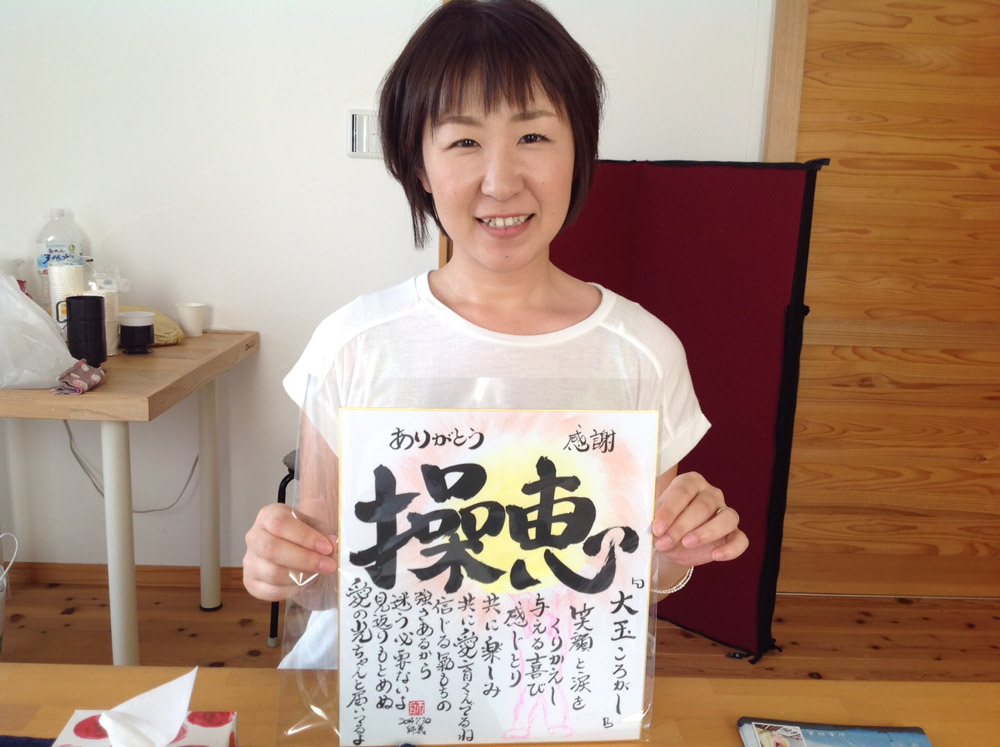 ありがとう 感謝
操恵
「大玉ころがし」
笑顔と涙を
くりかえし
与える喜び
感じとり
共に楽しみ
共に愛育くんでるね
信じる氣もちの
強さあるから
迷う必要ないよ
見返りもとめぬ
愛の光ちゃんと届いてるよ
2014.7.30